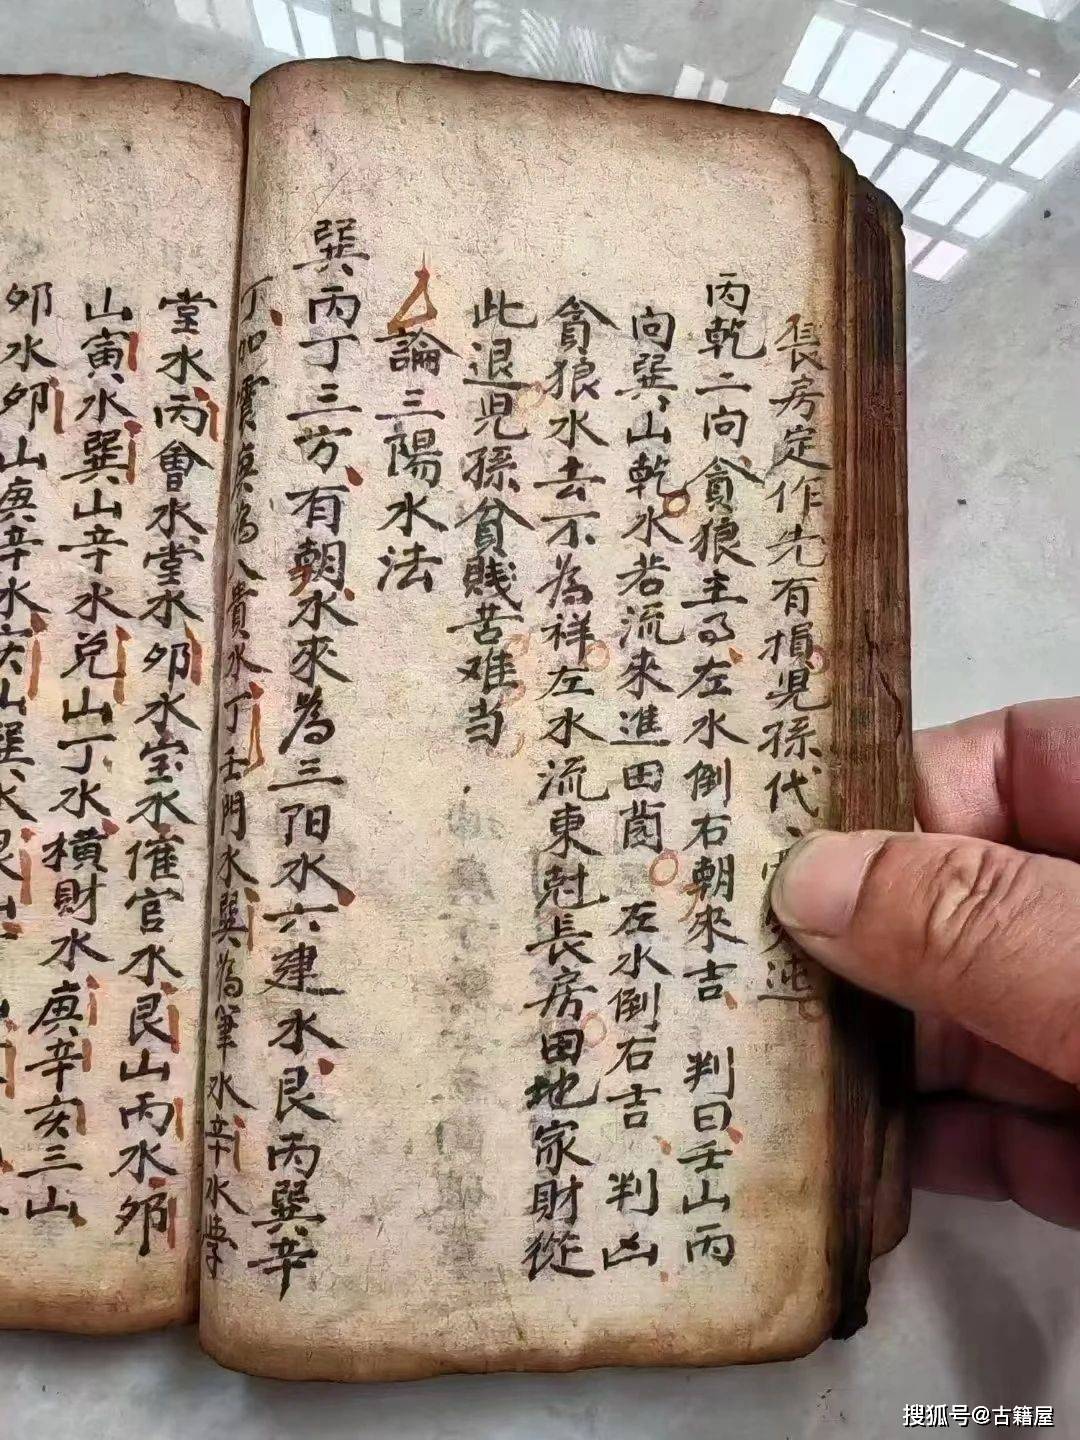 長房定作先有損児孫代
丙乾二向貪狼主了左水倒右朝來吉 判曰壬山丙
向巽山乾水若流來進田莭 左水倒右吉 判凶
貪狼水去不為祥左水流東尅長房田地家財從
此退児孫貧賤苦难当
論三陽水法
巽丙丁三方有朝水來為三阳水六建水艮丙巽辛
丁加震庚為八貴水丁壬門水巽為筆水辛水學
堂水丙會水堂水夘水宝水催官水艮山丙水夘
山寅水巽山辛水兑山丁水橫財水庚辛亥三山
夘水夘山庚辛水亥山巽水艮
搜狐号@古籍屋